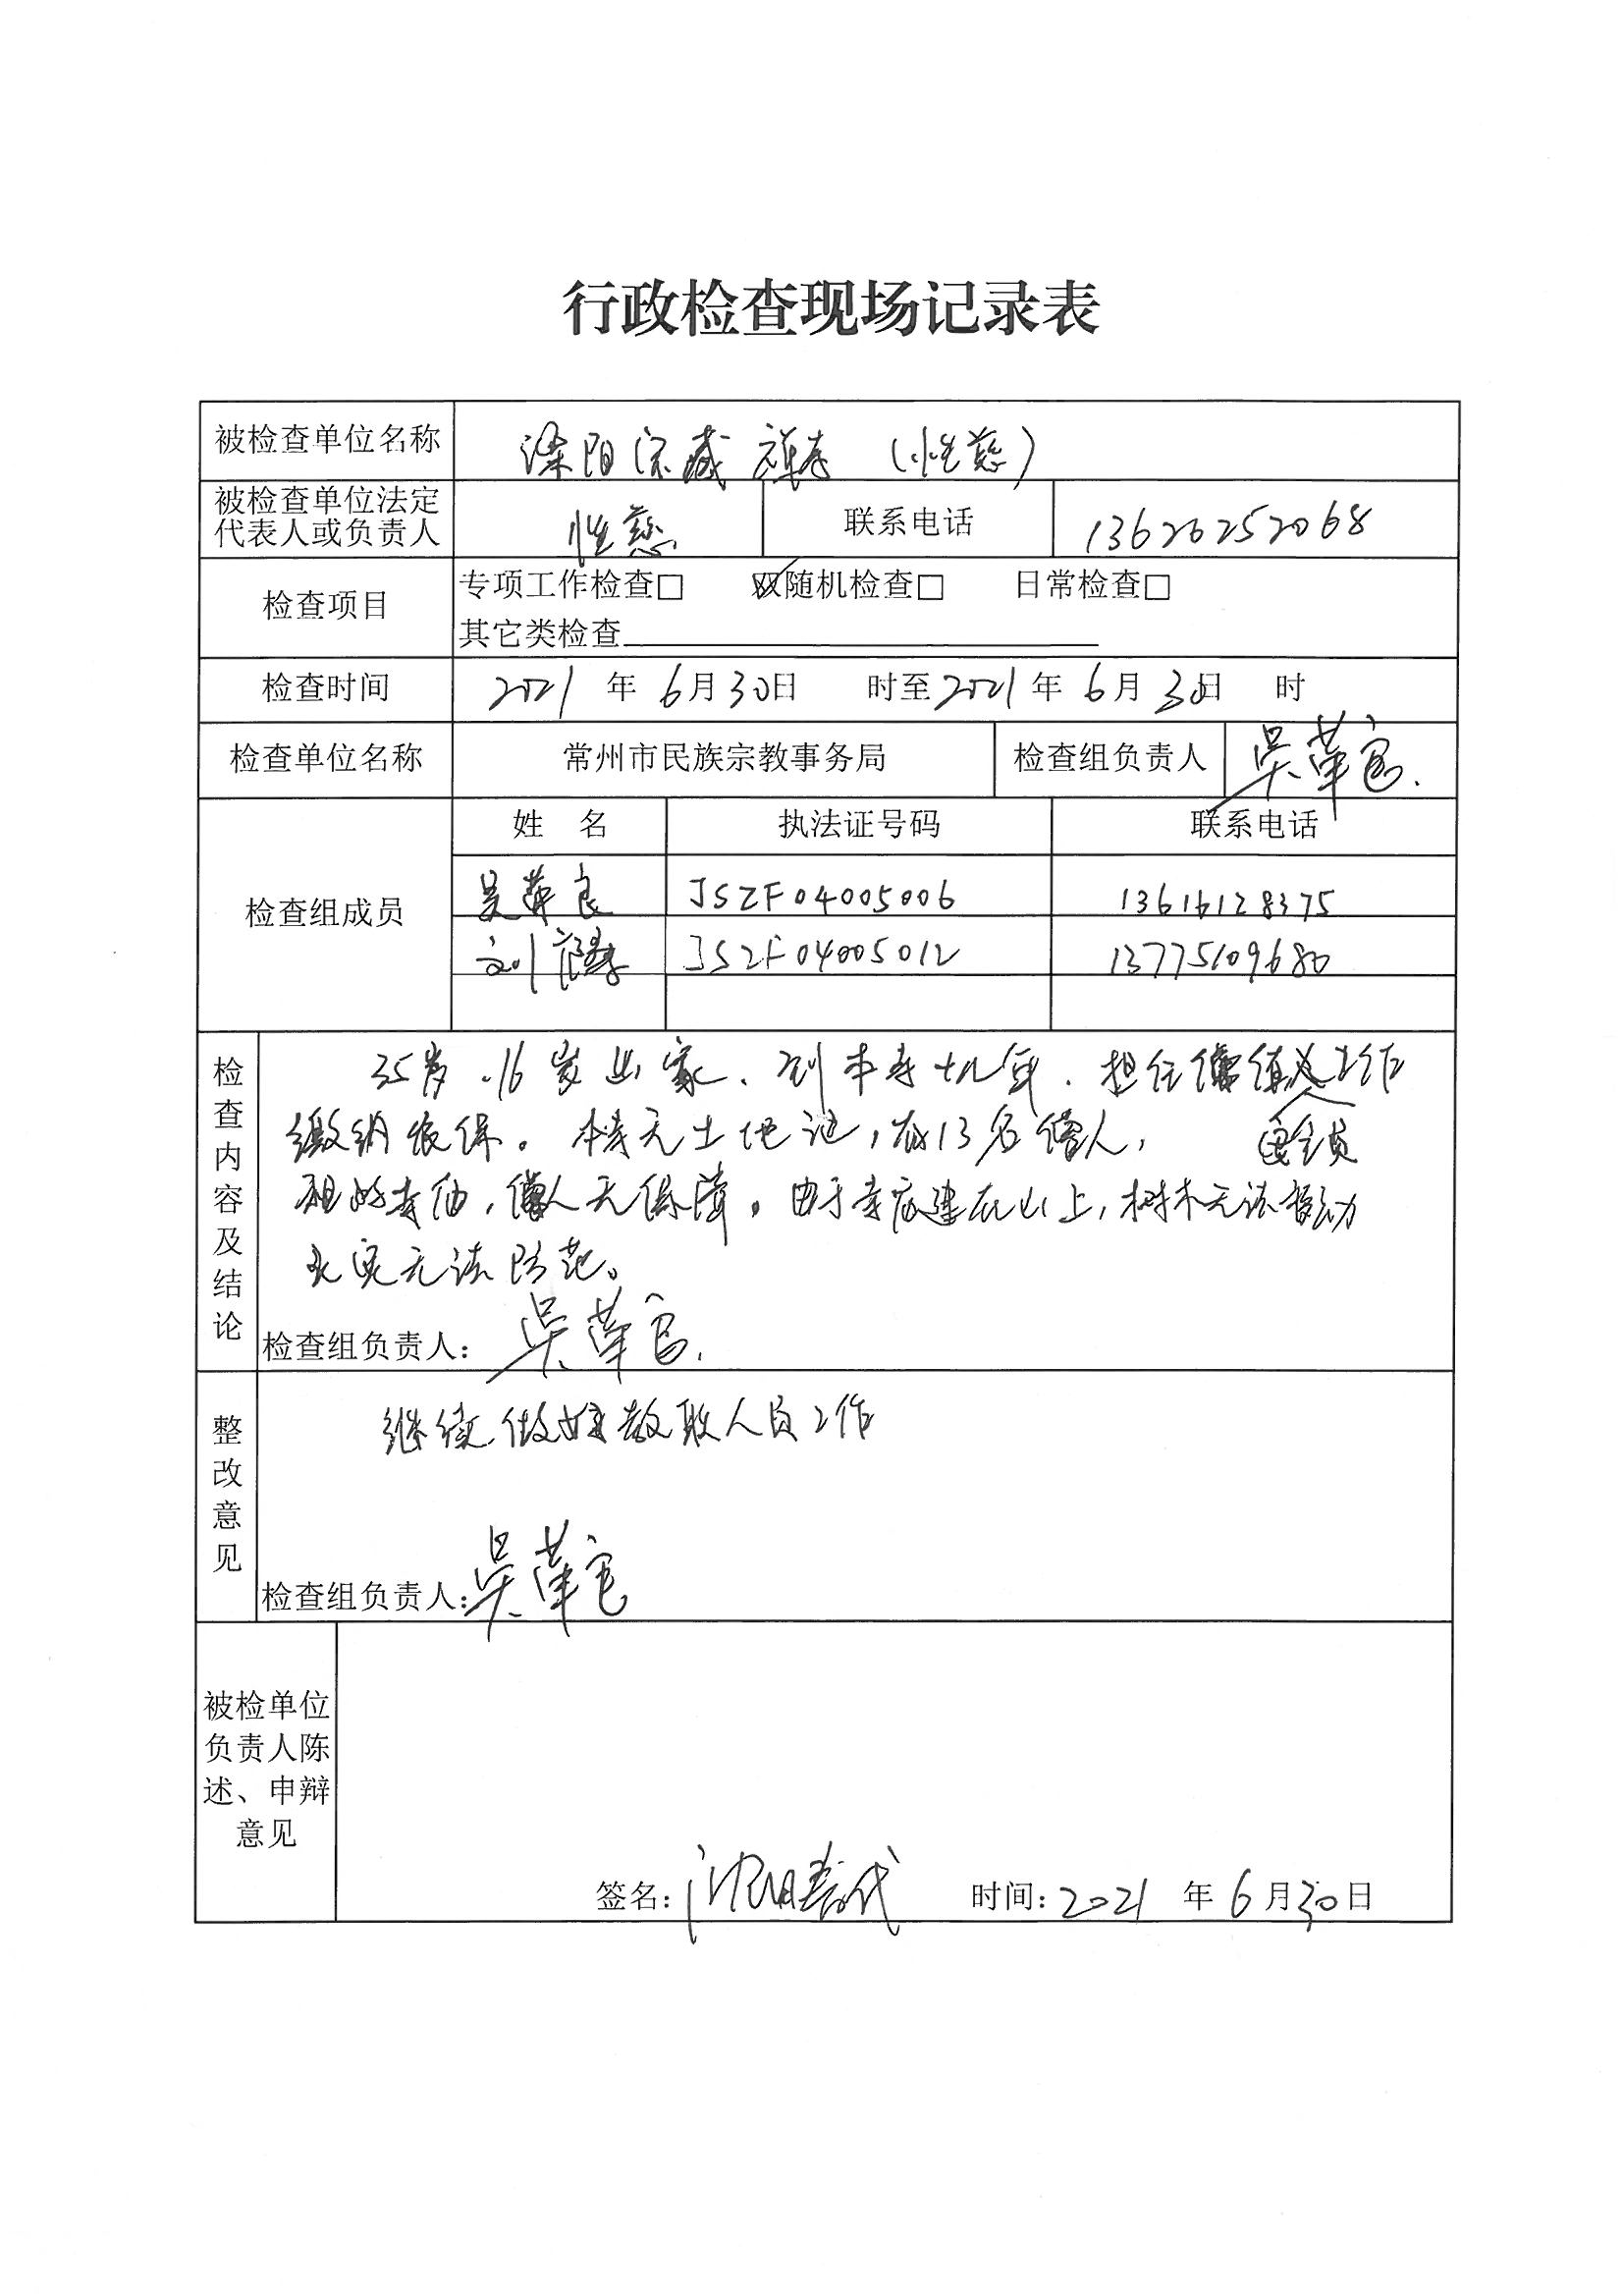 行政检查现场记录表
被检查单位名称 溧阳宗藏禅寺（性慈）
被检查单位法定代表人或负责人 性慈 联系电话 13626252068
检查项目 专项工作检查□ 双随机检查□ 日常检查□
其它类检查
检查时间 2021年6月30日 时至2021年6月30日 时
检查单位名称 常州市民族宗教事务局 检查组负责人 吴
检查组成员 姓 名 执法证号码 联系电话
吴 良 JSZF04005006 13616128375
刘 JSZF04005012 13775109680
检查内容及结论
35岁，16岁出家、到本寺九年．担任
缴纳农保。本寺无土地证，有13名僧人，
寺庙，僧人无保障。由于寺庙建在山上，树木无法移动
火灾无法防范。
检查组负责人： 吴
整改意见
继续做好教职人员工作
检查组负责人：吴
被检单位负责人陈述、申辩意见
签名： 时间：2021年6月30日